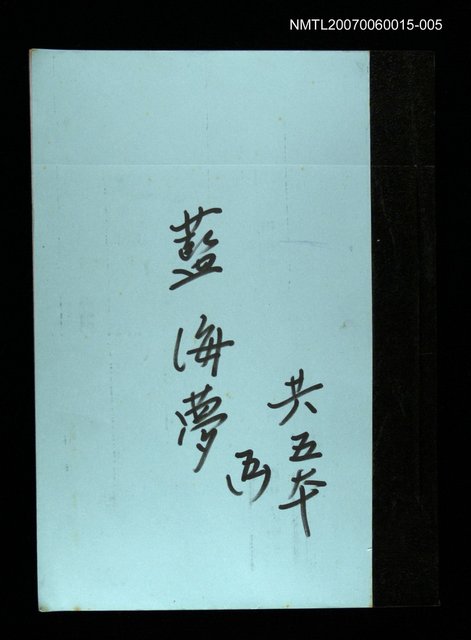 NMTL20070060015-005
藍海夢(五)
共五本